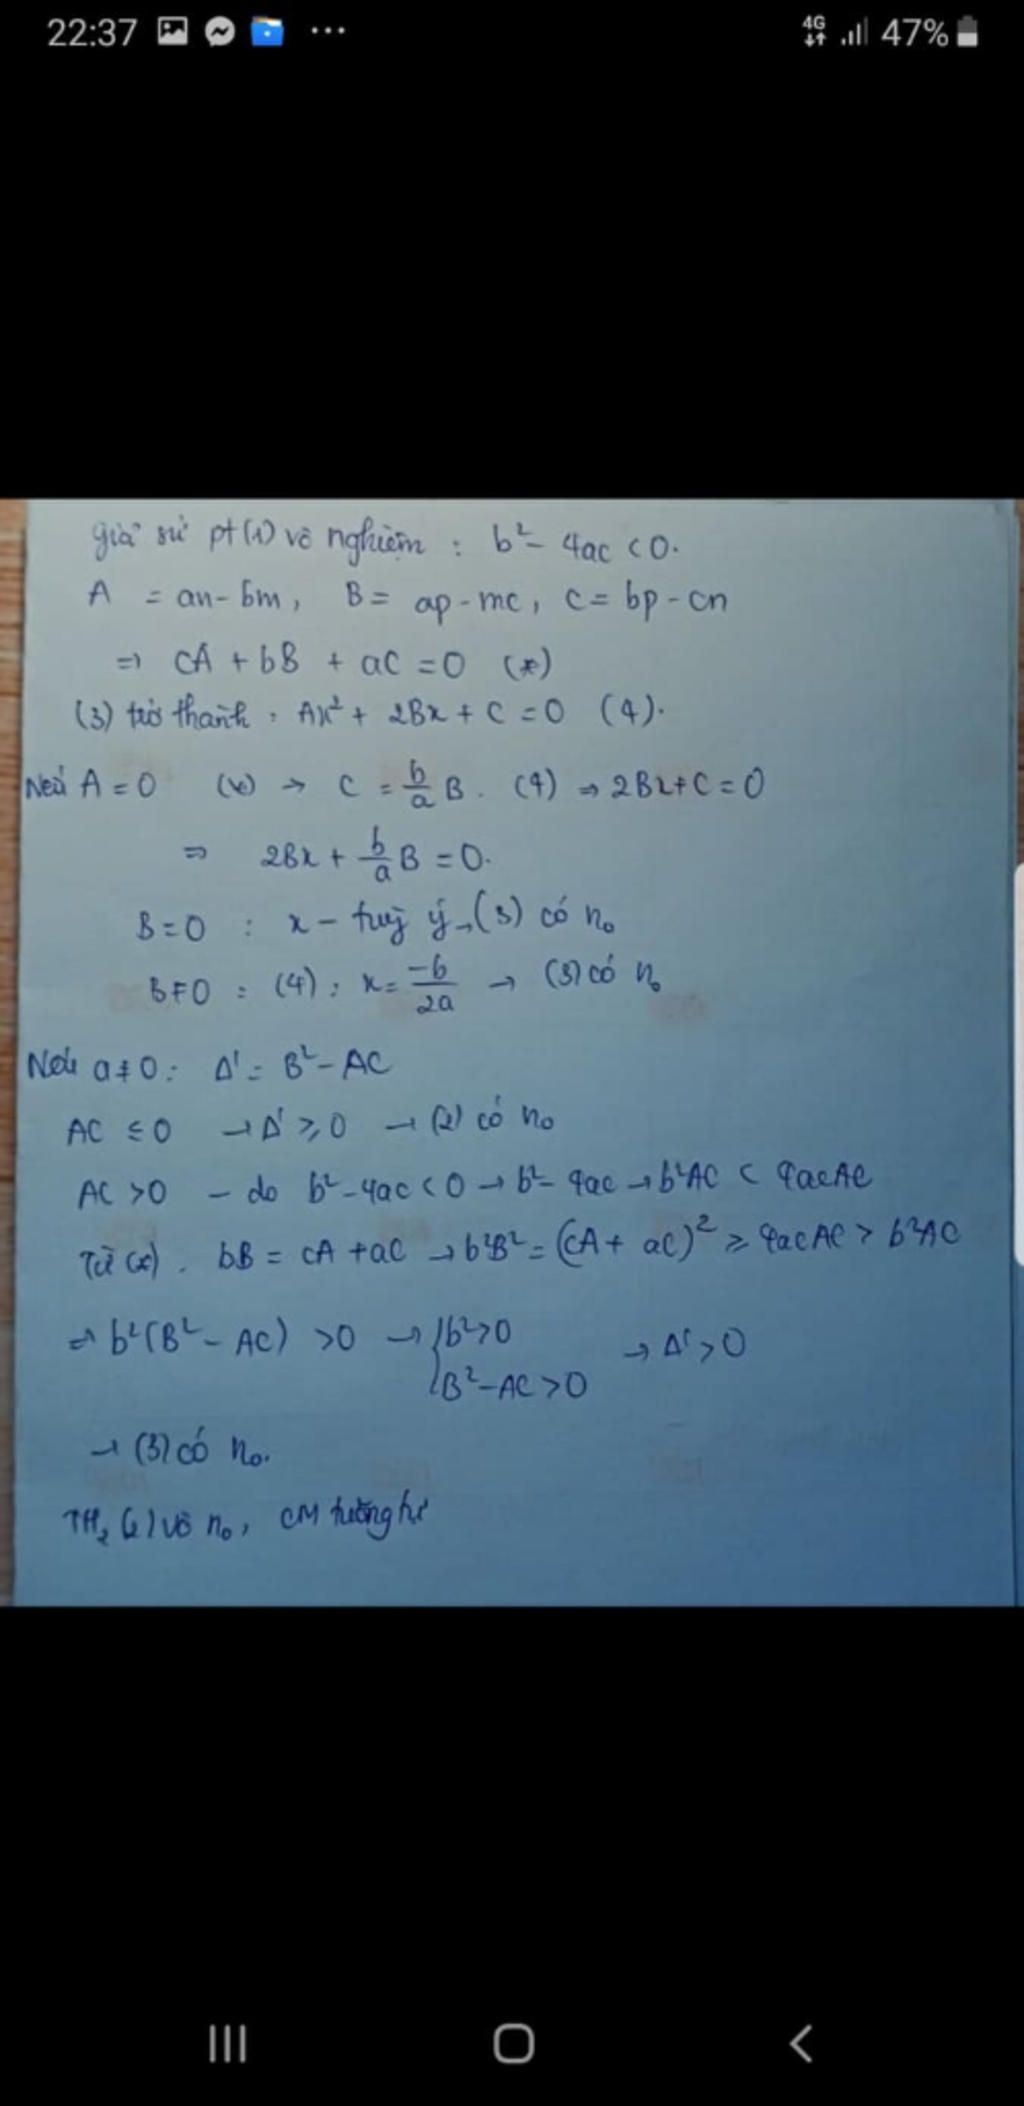 22:37 ... 4G 47%
Giả sử pt(1) vô nghiệm : b² - 4ac < 0.
A = an - bm, B = ap - mc, C = bp - cn
=> cA + bB + aC = 0 (*)
(3) trở thành : Ax² + 2Bx + C = 0 (4).
Nếu A = 0 (*) → C = b/a B. (4) => 2Bx + C = 0
=> 2Bx + b/a B = 0.
B = 0 : x - tuỳ ý → (3) có n₀
B ≠ 0 : (4) : x = -b/2a → (3) có n₀
Nếu a ≠ 0 : Δ' = B² - AC
AC ≤ 0 → Δ' ≥ 0 → (2) có n₀
AC > 0 - do b² - 4ac < 0 → b² - 4ac → b²AC < 4acAC
Từ (*). bB = cA + aC → b²B² = (cA + aC)² ≥ 4acAC > b²AC
=> b²(B² - AC) > 0 → { b² > 0
B² - AC > 0 → Δ' > 0
→ (3) có n₀.
TH₂ (2) vô n₀, CM tương tự